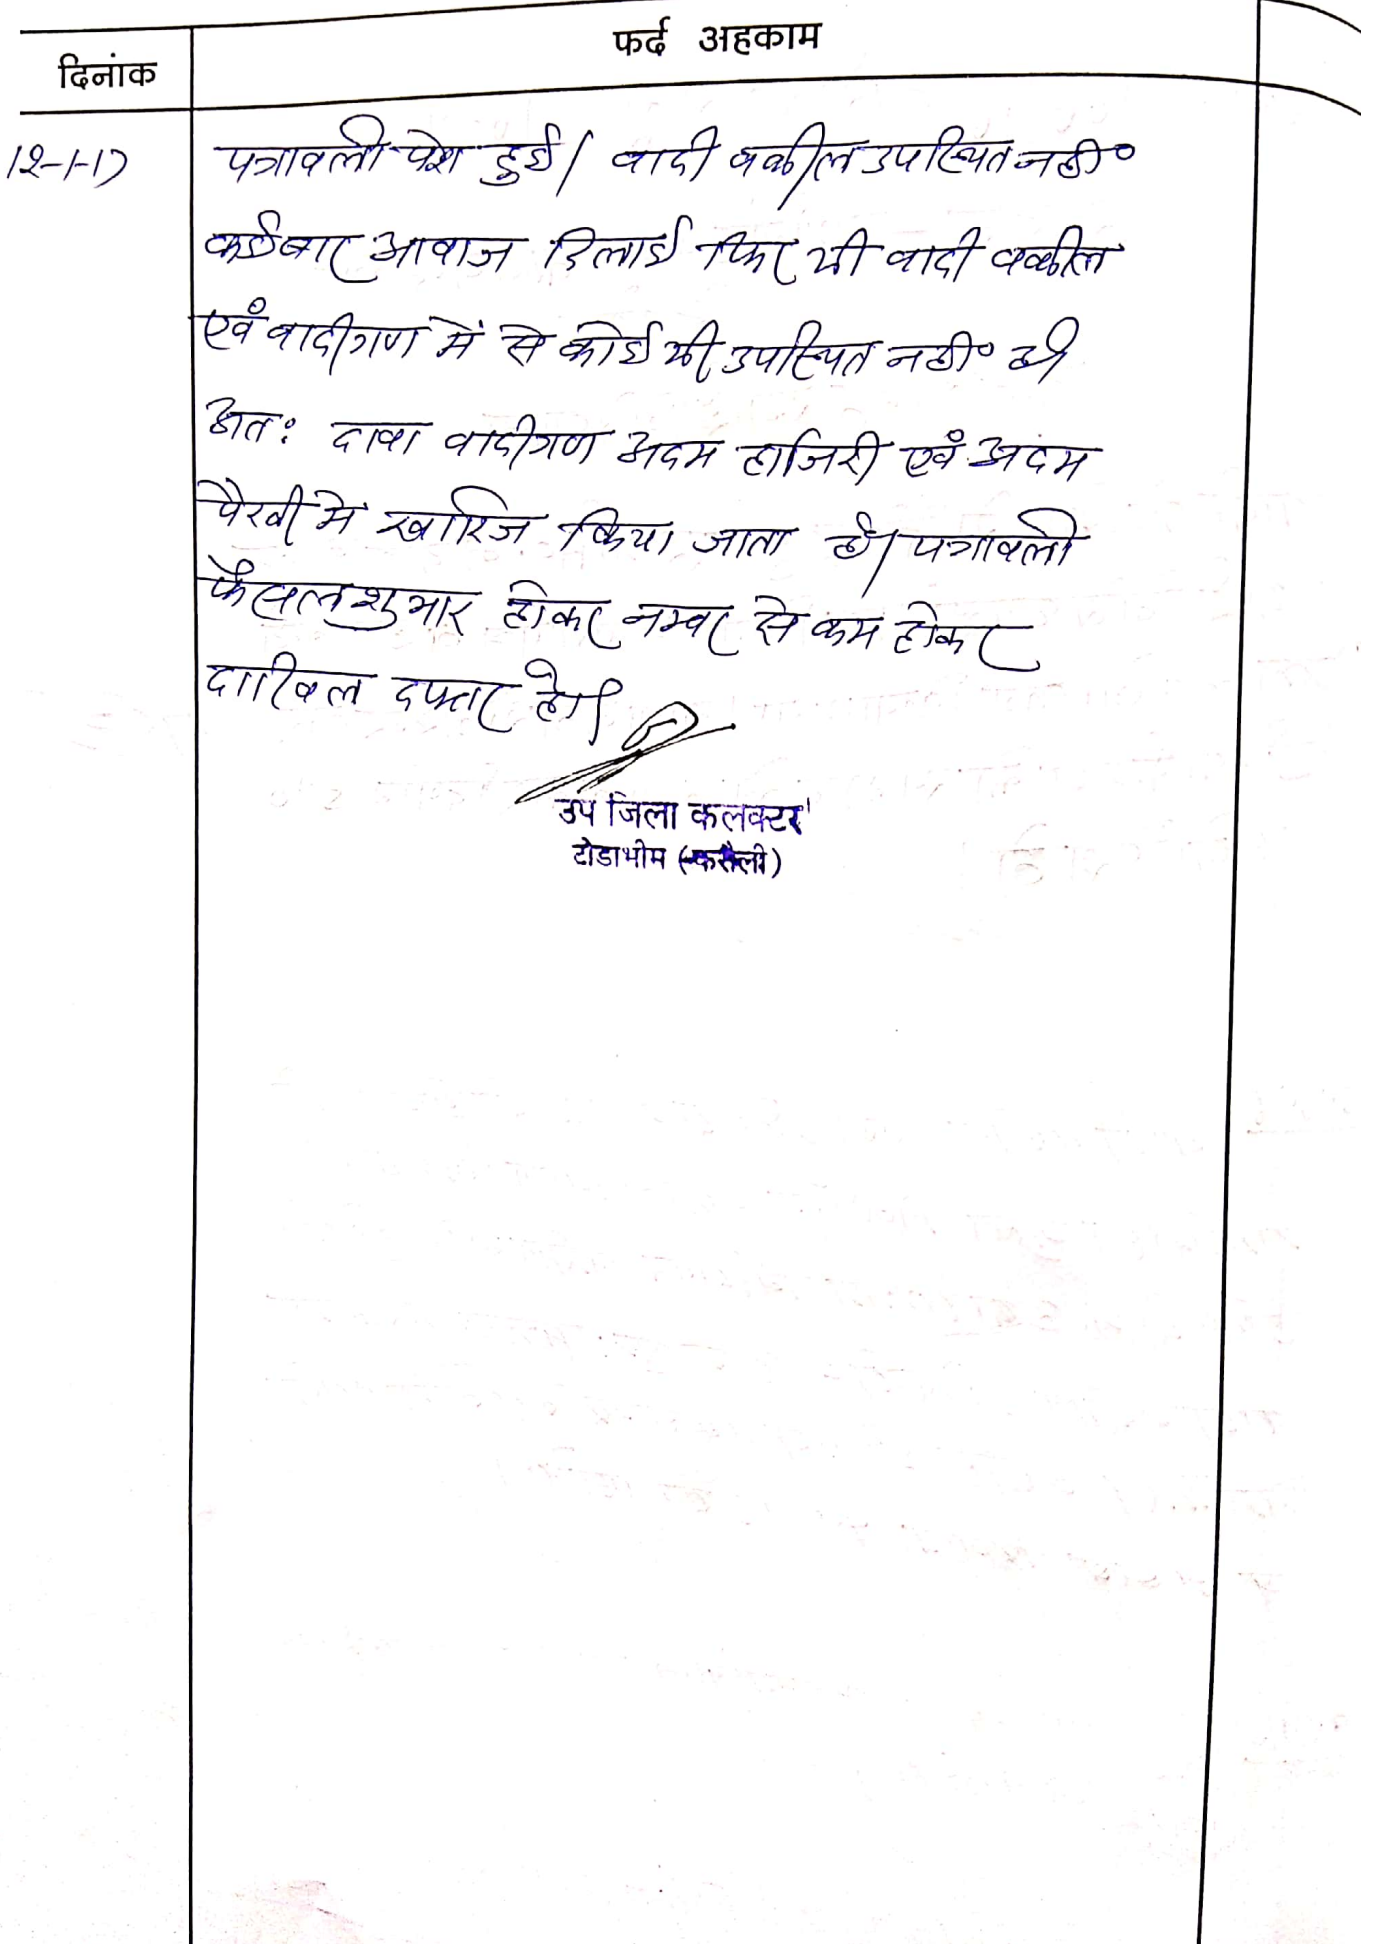 फर्द अहकाम
दिनांक
12-1-17
पत्रावली पेश हुई। वादी वकील उपस्थित नहीं
कईबार आवाज दिलाई फिर भी वादी वकील
एवं वादीगण में से कोई भी उपस्थित नहीं है।
अतः दावा वादीगण अदम हाजिरी एवं अदम
पैरवी में खारिज किया जाता है। पत्रावली
फैसल शुमार होकर नम्बर से कम होकर
दाखिल दफ्तर हो।
उप जिला कलक्टर
टोडाभीम (करौली)